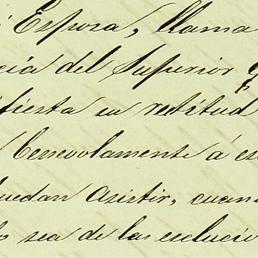 Esposa, llama
cia del Superior q
fiesta su rectitud
Benevolamente á es
uedan asistir, cuan
los sea de las esclucio